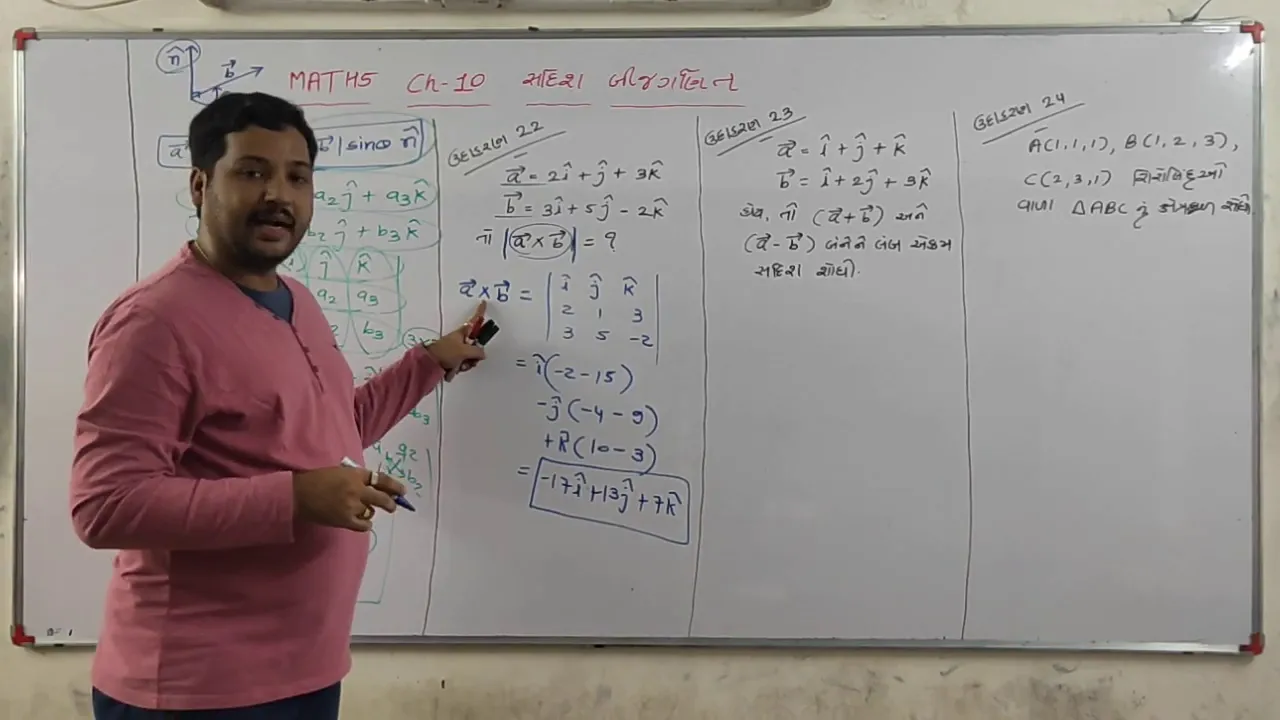 MATHS Ch-10 સદિશ બીજગણિત
n̂
b⃗
a⃗ b⃗ | sinθ n̂
a₂ĵ + a₃k̂
b₂ĵ + b₃k̂
ĵ k̂
a₂ a₃
b₃
ઉદાહરણ 22
a⃗ = 2î + ĵ + 3k̂
b⃗ = 3î + 5ĵ - 2k̂
તો |a⃗ × b⃗| = ?
a⃗ × b⃗ = | î ĵ k̂ |
2 1 3
3 5 -2
= î(-2 - 15)
-ĵ(-4 - 9)
+k̂(10 - 3)
= -17î + 13ĵ + 7k̂
ઉદાહરણ 23
a⃗ = î + ĵ + k̂
b⃗ = î + 2ĵ + 3k̂
હોય, તો (a⃗ + b⃗) અને
(a⃗ - b⃗) બંનેને લંબ એકમ
સદિશ શોધો.
ઉદાહરણ 24
A(1,1,1), B(1,2,3),
C(2,3,1) શિરોબિંદુઓ
વાળા ΔABC નું ક્ષેત્રફળ શોધો.